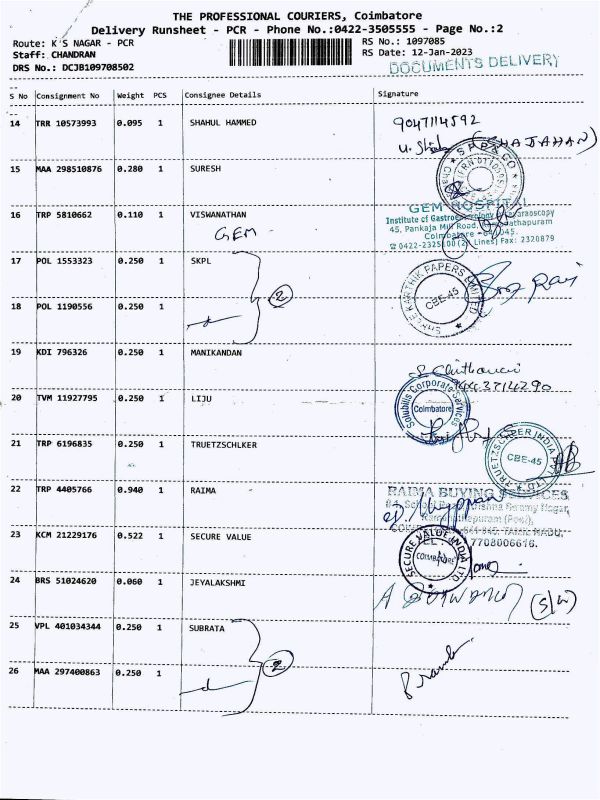 THE PROFESSIONAL COURIERS, Coimbatore
Delivery Runsheet - PCR - Phone No.:0422-3505555 - Page No.:2
Route: K S NAGAR - PCR
Staff: CHANDRAN
DRS No.: DCJB109708502
RS No.: 1097085
RS Date: 12-Jan-2023
DOCUMENTS DELIVERY
S No Consignment No Weight PCS Consignee Details Signature
14 TRR 10573993 0.095 1 SHAHUL HAMMED
9047114592
(SHAJAHAN)
15 MAA 298510876 0.280 1 SURESH
16 TRP 5810662 0.110 1 VISWANATHAN
GEM
GEM HOSPITAL
Institute of Gastroenterology
45, Pankaja Mill Road,
Coimbatore - 641 045.
0422-2325100 (2 Lines) Fax: 2320879
17 POL 1553323 0.250 1 SKPL
2
SHREE KARTHIK PAPERS LIMITED
CBE-45
18 POL 1190556 0.250 1
19 KDI 796326 0.250 1 MANIKANDAN
9443714290
20 TVM 11927795 0.250 1 LIJU
Solubilis Corporate Services
Coimbatore
21 TRP 6196835 0.250 1 TRUETZSCHLKER
CBE-45
22 TRP 4405766 0.940 1 RAIMA
RAIMA BUYING SERVICES
7708006616.
23 KCM 21229176 0.522 1 SECURE VALUE
SECURE VALUE INDIA LTD
COIMBATORE
24 BRS 51024620 0.060 1 JEYALAKSHMI
25 VPL 401034344 0.250 1 SUBRATA
2
26 MAA 297400863 0.250 1